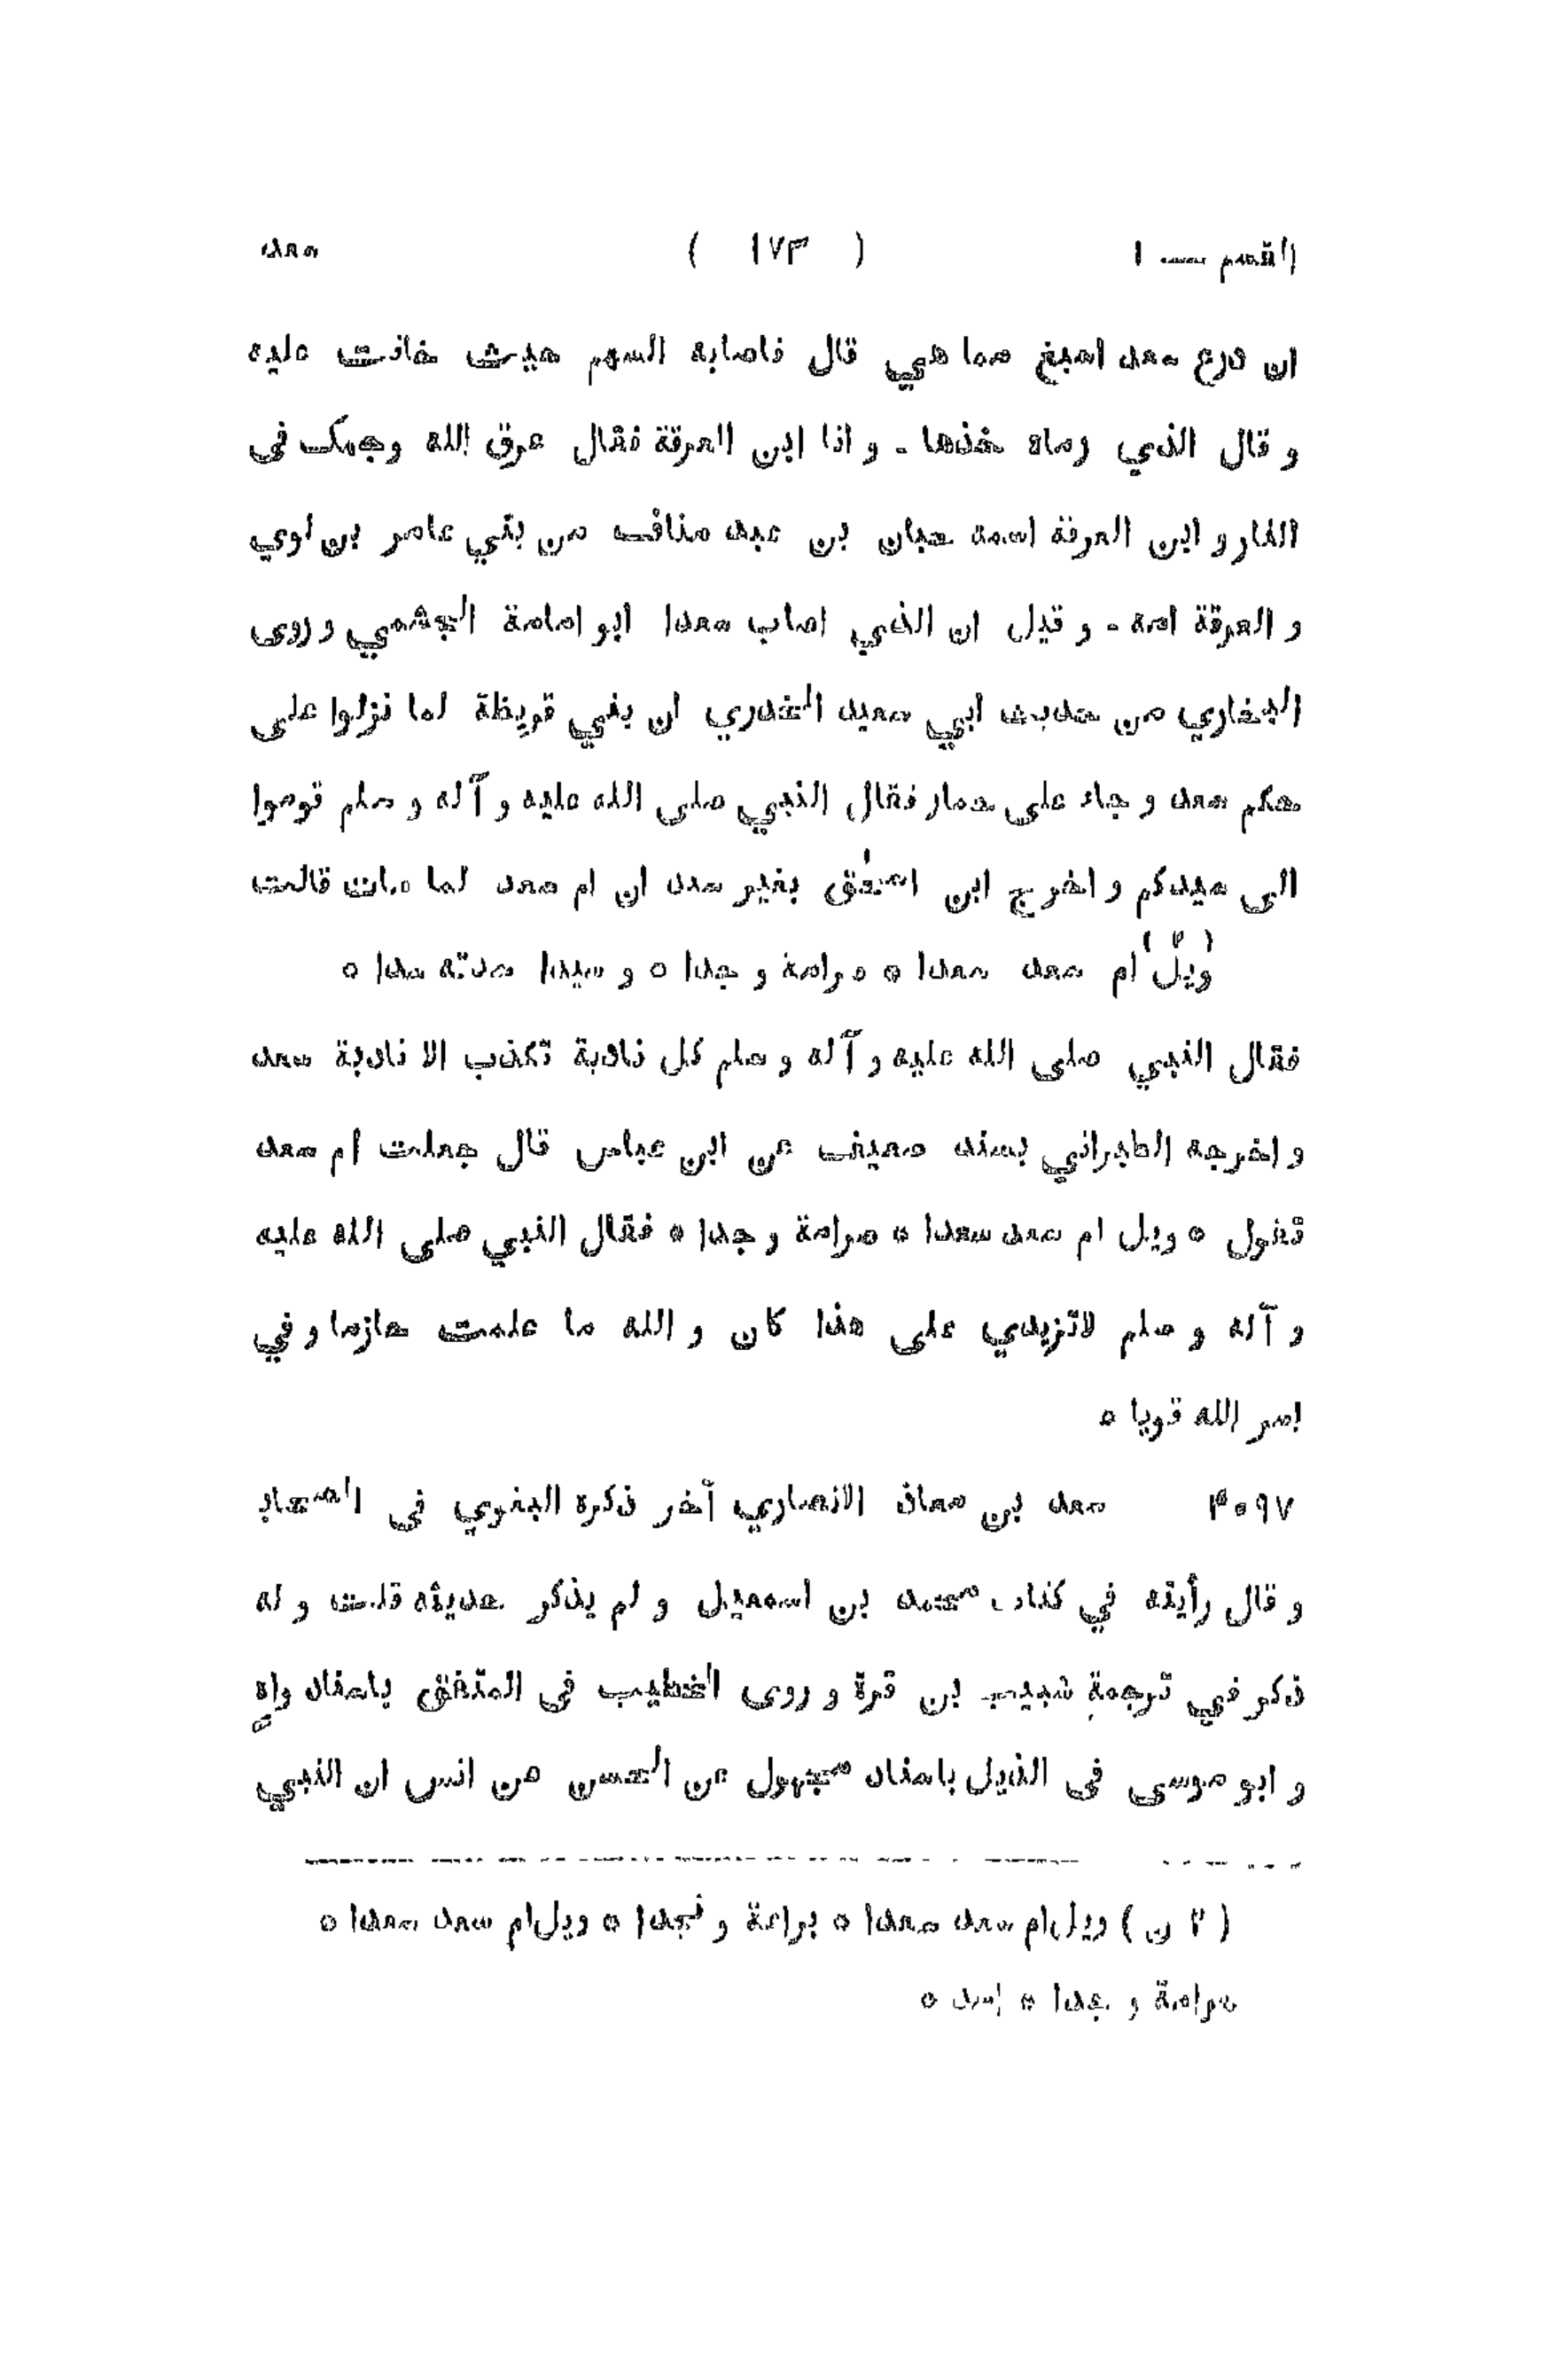 القسم — ١ ( ١٧٣ ) سعد
ان درع سعد اسبغ مما هي قال فاصابه السهم حيث خافت عليه
و قال الذي رماه خذها ـ و انا ابن العرقة فقال عرق الله وجهك فى
النار و ابن العرقة اسمه حبان بن عبد مناف من بني عامر بن لوي
و العرقة امه ـ و قيل ان الذي اصاب سعدا ابو امامة الجشمي و روى
البخاري من حديث ابي سعيد الخدري ان بني قريظة لما نزلوا على
حكم سعد و جاء على حمار فقال النبي صلى الله عليه و آله و سلم قوموا
الى سيدكم و اخرج ابن اسحٰق بغير سند ان ام سعد لما مات قالت
ويل (٢) ام سعد سعدا ٥ صرامة و جدا ٥ و سيدا سدته سدا ٥
فقال النبي صلى الله عليه و آله و سلم كل نادبة تكذب الا نادبة سعد
و اخرجه الطبراني بسند ضعيف عن ابن عباس قال جعلت ام سعد
تقول ٥ ويل ام سعد سعدا ٥ صرامة و جدا ٥ فقال النبي صلى الله عليه
و آله و سلم لاتزيدي على هذا كان و الله ما علمت حازما و في
امر الله قويا ٥
٣٠٩٧ سعد بن معاذ الانصاري آخر ذكره البغوي فى الصحابة
و قال رأيته في كتاب محمد بن اسمعيل و لم يذكر حديثه قلت و له
ذكر في ترجمة شبيب بن قرة و روى الخطيب فى المتفق باسناد واهٍ
و ابو موسى فى الذيل باسناد مجهول عن الحسن عن انس ان النبي
( ٢ ن ) ويل ام سعد سعدا ٥ براعة و نجدا ٥ ويل ام سعد سعدا ٥
صرامة و جدا ٥ اسد ٥